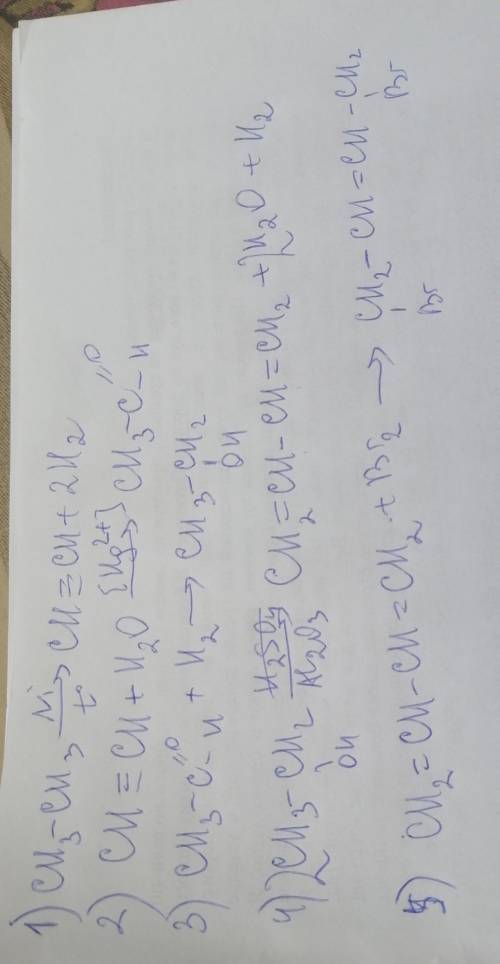 1) CH₃–CH₃ —Ni/t°→ CH≡CH + 2H₂
2) CH≡CH + H₂O —[Hg²⁺]→ CH₃–C(=O)–H
3) CH₃–C(=O)–H + H₂ → CH₃–CH₂–OH
4) 2CH₃–CH₂–OH —Al₂O₃→ CH₂=CH–CH=CH₂ + 2H₂O + H₂
5) CH₂=CH–CH=CH₂ + Br₂ → CH₂(Br)–CH=CH–CH₂(Br)